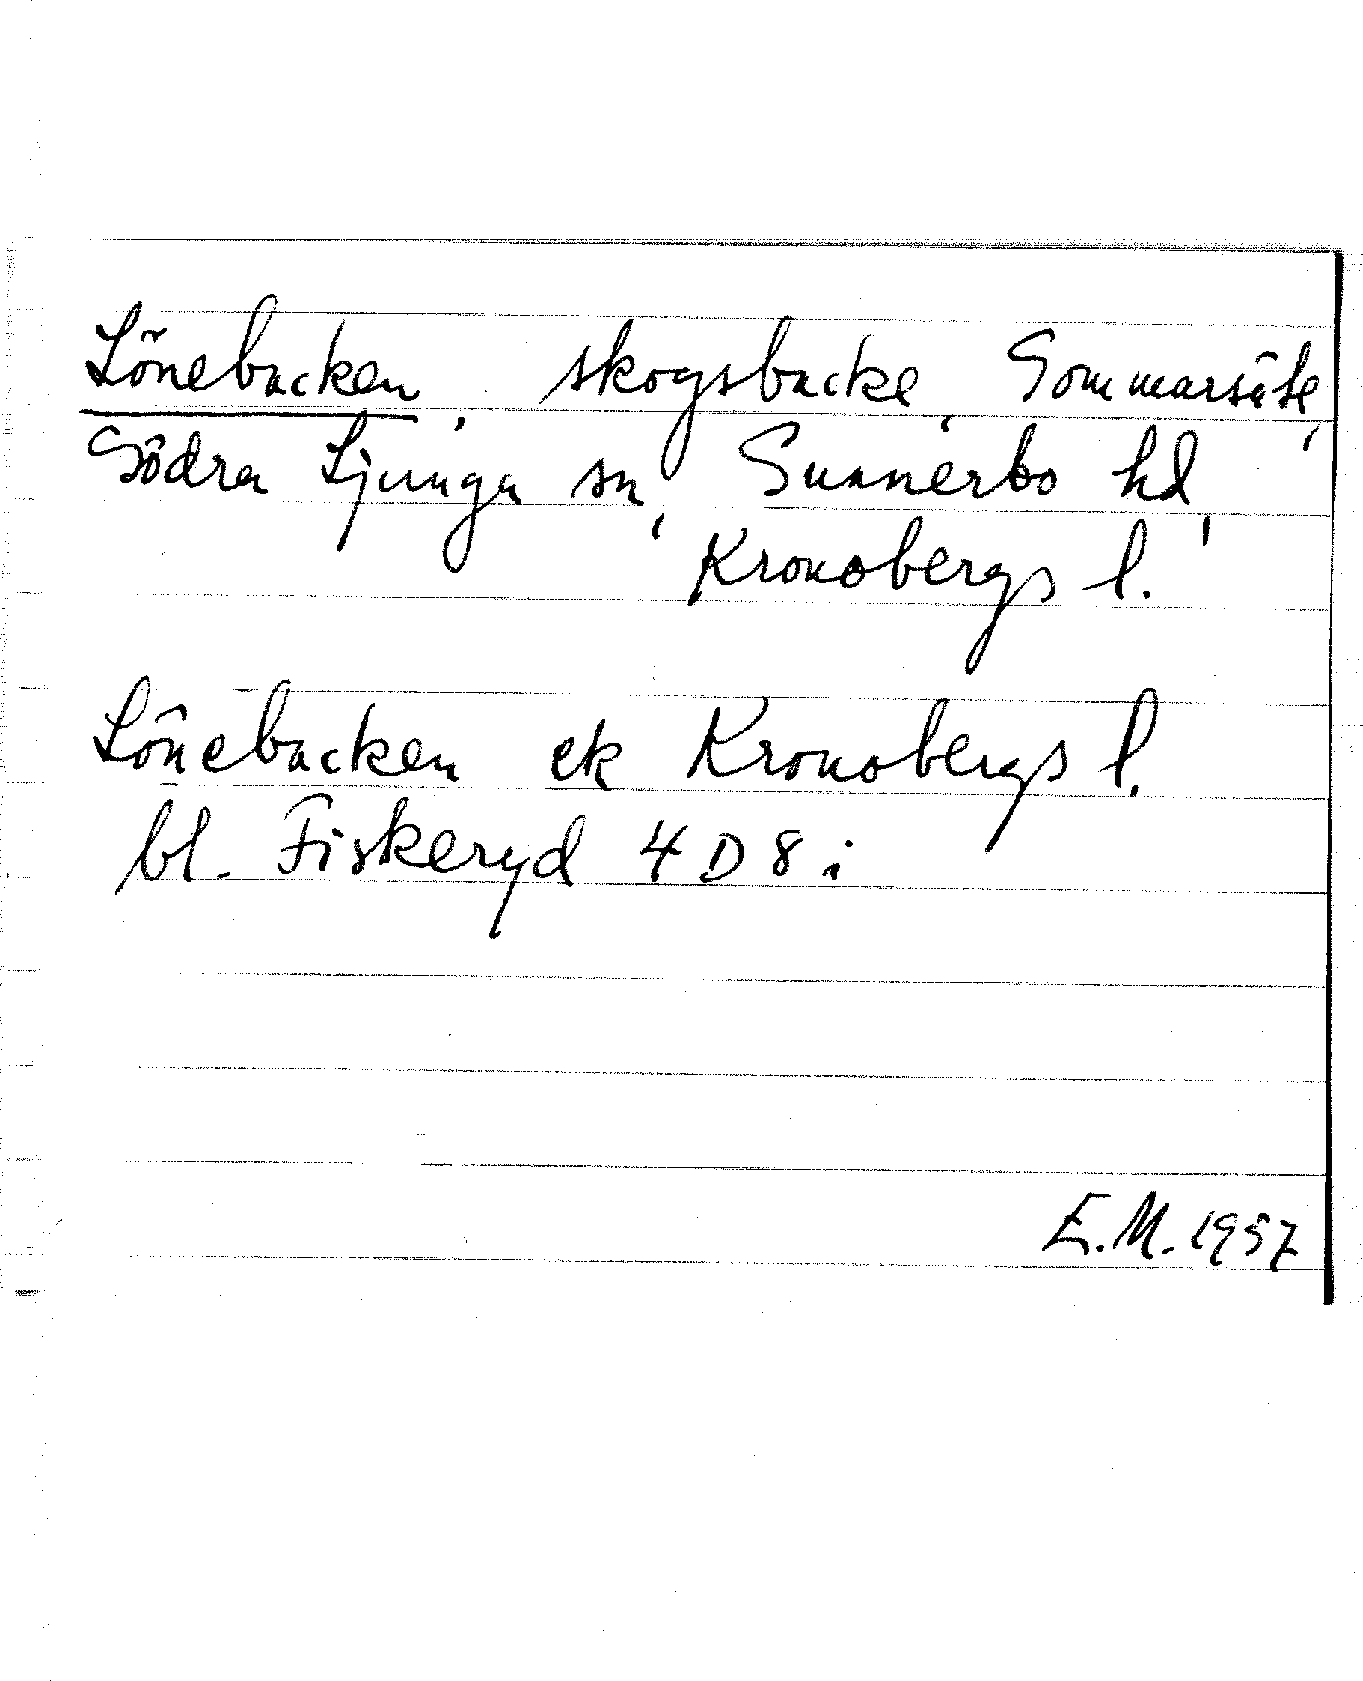 Lönebacken, skogsbacke, Sommarsäte,
Södra Ljunga sn, Sunnerbo hd,
Kronobergs l.
Lönebacken ek Kronobergs l.
bl. Fiskeryd 4 D 8 i
E.M. 1957